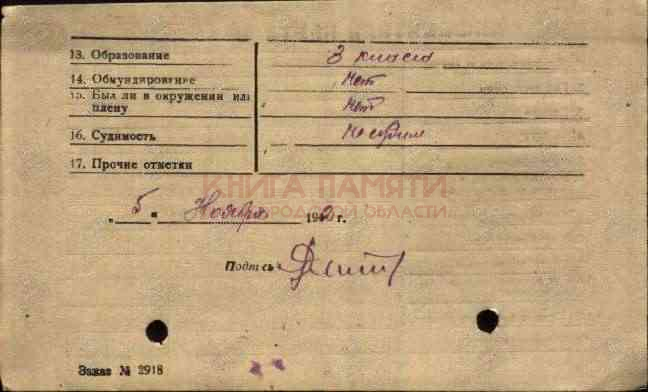 13. Образование 3 класса
14. Обмундирование нет
15. Был ли в окружении или
плену нет
16. Судимость не судим
17. Прочие отметки
КНИГА ПАМЯТИ
ОБЛАСТИ
„ 5 " Ноября 194 г.
Подпись
Заказ № 2918